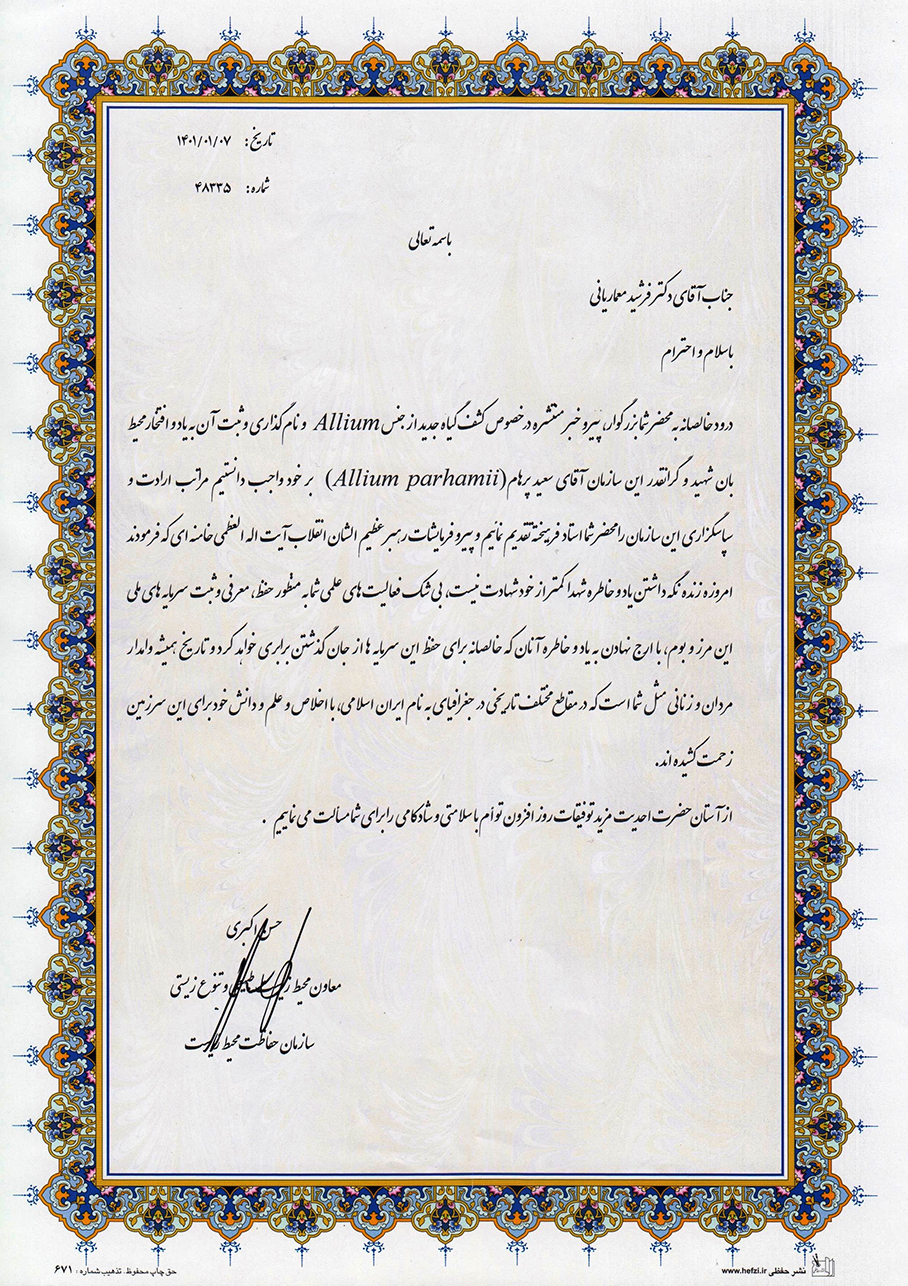 تاریخ: ۱۴۰۱/۰۱/۰۷
شماره: ۴۸۳۳۵
باسمه تعالی
جناب آقای دکتر فرشید معماریانی
باسلام و احترام
درود خالصانه به محضر شما بزرگوار، پیرو خبر منتشره در خصوص کشف گیاه جدید از جنس Allium و نام گذاری و ثبت آن به یاد و افتخار محیط
بان شهید و گرانقدر این سازمان آقای سعید پرهام (Allium parhamii) بر خود واجب دانستیم مراتب ارادت و
سپاسگزاری این سازمان را محضر شما استاد فرهیخته تقدیم نمائیم و پیرو فرمایشات رهبر عظیم الشان انقلاب آیت اله العظمی خامنه ای که فرمودند
امروزه زنده نگه داشتن یاد و خاطره شهدا کمتر از خود شهادت نیست، بی شک فعالیت های علمی شما به منظور حفظ، معرفی و ثبت سرمایه های ملی
این مرز و بوم، با ارج نهادن به یاد و خاطره آنان که خالصانه برای حفظ این سرمایه ها از جان گذشتن برابری خواهد کرد و تاریخ همیشه وامدار
مردان و زنانی مثل شما است که در مقاطع مختلف تاریخی در جغرافیای به نام ایران اسلامی، با اخلاص و علم و دانش خود برای این سرزمین
زحمت کشیده اند.
از آستان حضرت احدیت مزید توفیقات روز افزون توأم با سلامتی و شادکامی را برای شما مسألت می نماییم .
حسن اکبری
معاون محیط زیست طبیعی و تنوع زیستی
سازمان حفاظت محیط زیست
حق چاپ محفوظ. تذهیب شماره : ۶۷۱
نشر حفظی www.hefzi.ir